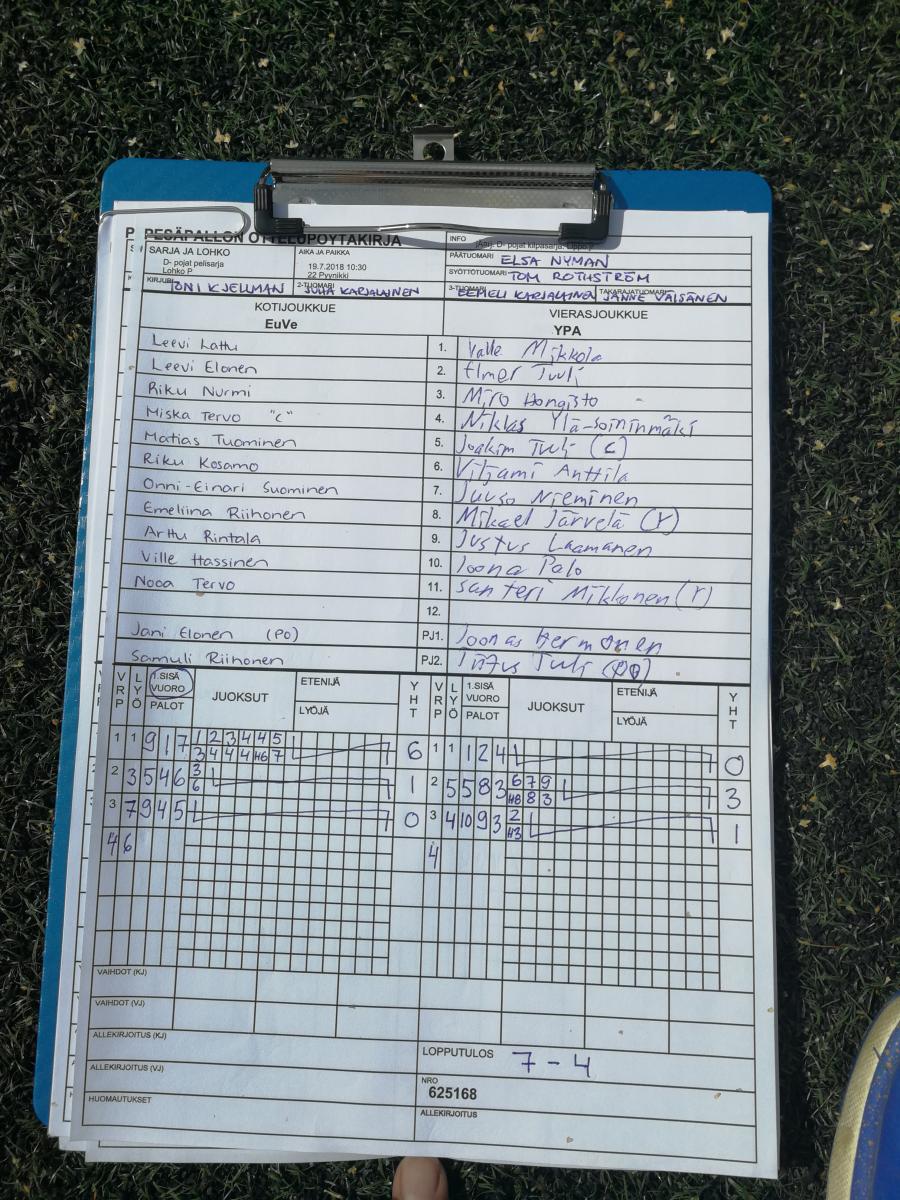 PESÄPALLON OTTELUPÖYTÄKIRJA
INFO
D- pojat kilpasarja,
SARJA JA LOHKO
D- pojat pelisarja
Lohko P
AIKA JA PAIKKA
19.7.2018 10:30
22 Pyynikki
PÄÄTUOMARI ELSA NYMAN
SYÖTTÖTUOMARI TOM ROTHSTRÖM
KIRJURI TONI KJELLMAN 2-TUOMARI JUHA KARJALAINEN 3-TUOMARI EEMELI KARJALAINEN TAKARAJATUOMARI JANNE VÄISÄNEN
KOTIJOUKKUE VIERASJOUKKUE
EuVe YPA
Leevi Lattu 1. Valle Mikkola
Leevi Elonen 2. Elmer Tuuli
Riku Nurmi 3. Miro Hongisto
Miska Tervo "C" 4. Niklas Ylä-Soininmäki
Matias Tuominen 5. Joakim Tuuli (C)
Riku Kosamo 6. Viljami Anttila
Onni-Einari Suominen 7. Juuso Nieminen
Emeliina Riihonen 8. Mikael Järvelä (r)
Arttu Rintala 9. Justus Laamanen
Ville Hassinen 10. Joona Palo
Nooa Tervo 11. Santeri Mikkonen (r)
12.
Jani Elonen (PO) PJ1. Joonas
Samuli Riihonen PJ2.
VRP LYÖ 1.SISÄ VUORO PALOT JUOKSUT ETENIJÄ LYÖJÄ YHT VRP LYÖ 1.SISÄ VUORO PALOT JUOKSUT ETENIJÄ LYÖJÄ YHT
1 1 9 1 7 1 2 3 4 4 5 6 1 1 1 2 4 0
3 4 4 4 H6 7
2 3 5 4 6 3 1 2 5 5 8 3 6 7 9 3
6 H8 8 3
3 7 9 4 5 0 3 4 10 9 3 2 1
H3
4 6 4
VAIHDOT (KJ)
VAIHDOT (VJ)
ALLEKIRJOITUS (KJ)
LOPPUTULOS 7 - 4
ALLEKIRJOITUS (VJ)
NRO
625168
HUOMAUTUKSET
ALLEKIRJOITUS